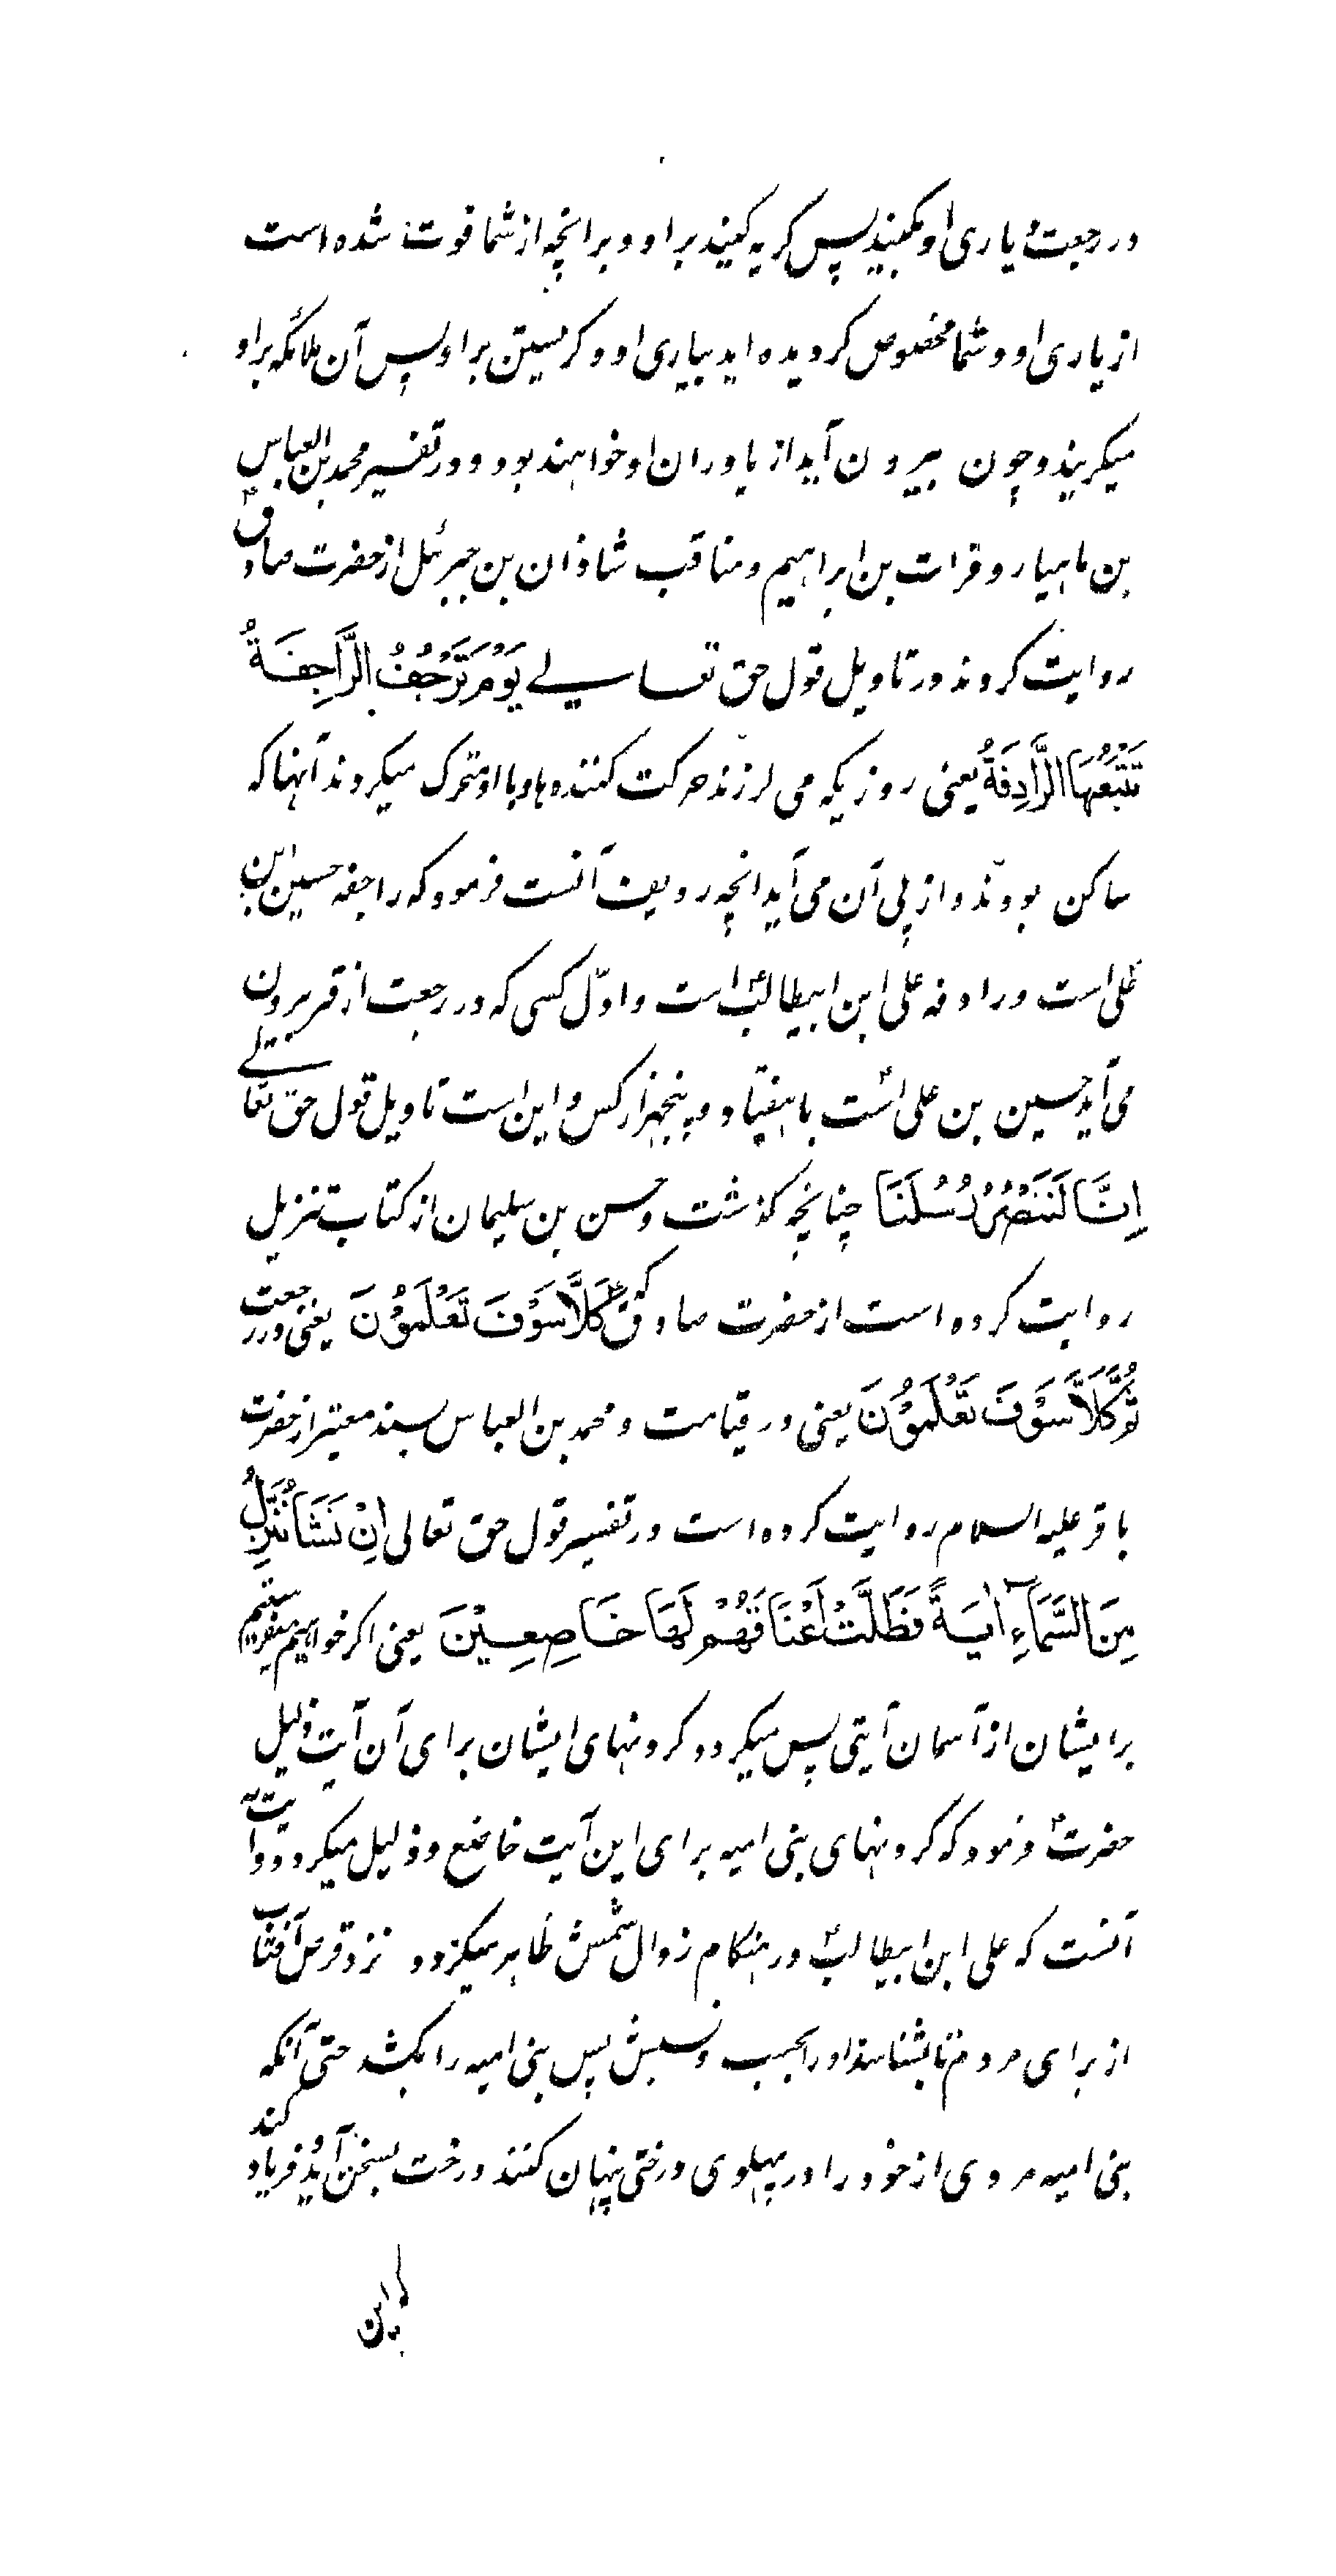 در رجعت یاری او بکنید پس کریه کنید بر او و بر انچه از شما فوت شده است
از یاری او و شما مخصوص کردیده اید بیاری او و کریستن بر او پس آن ملائکه بر او
میکریند و چون بیرون آید از یاوران او خواهند بود و در تفسیر محمد بن العباس
بن ماهیار و فرات بن ابراهیم و مناقب شاذان بن جبرئیل از حضرت صادق
روایت کردند در تاویل قول حق تعالی یَوْمَ تَرْجُفُ الرَّاجِفَةُ
تَتْبَعُهَا الرَّادِفَةُ یعنی روزیکه می لرزند حرکت کننده ها و با او متحرک میکردند آنها که
ساکن بودند و از پی آن می آید انچه ردیف آنست فرمود که راجفه حسین ابن
علی است و رادفه علی ابن ابیطالب است و اوّل کسی که در رجعت از قبر بیرون
می آید حسین بن علی است با هفتاد و پنجهزار کس و این است تاویل قول حق تعالی
اِنَّا لَنَنْصُرُ رُسُلَنَا چنانچه کذشت و حسن بن سلیمان از کتاب تنزیل
روایت کرده است از حضرت صادق که کَلَّا سَوْفَ تَعْلَمُوْنَ یعنی در رجعت
ثُمَّ کَلَّا سَوْفَ تَعْلَمُوْنَ یعنی در قیامت و محمد بن العباس بسند معتبر از حضرت
باقر علیه السلام روایت کرده است در تفسیر قول حق تعالی اِنْ نَشَأْ نُنَزِّلْ
مِنَ السَّمَآءِ اٰیَةً فَظَلَّتْ اَعْنَاقُهُمْ لَهَا خَاضِعِیْنَ یعنی اکر خواهیم میفرستیم
بر ایشان از آسمان آیتی پس میکردد کردنهای ایشان برای آن آیت ذلیل
حضرت فرمود که کردنهای بنی امیه برای این آیت خاضع و ذلیل میکردد و آیت
آنست که علی ابن ابیطالب در هنکام زوال شمس ظاهر میکردد نزد قرص آفتاب
از برای مردم تا بشناسند او را بحسب و نسبش پس بنی امیه را بکشد حتی آنکه
بنی امیه مردی از خود را در پهلوی درختی پنهان کنند درخت بسخن آید و فریاد کند